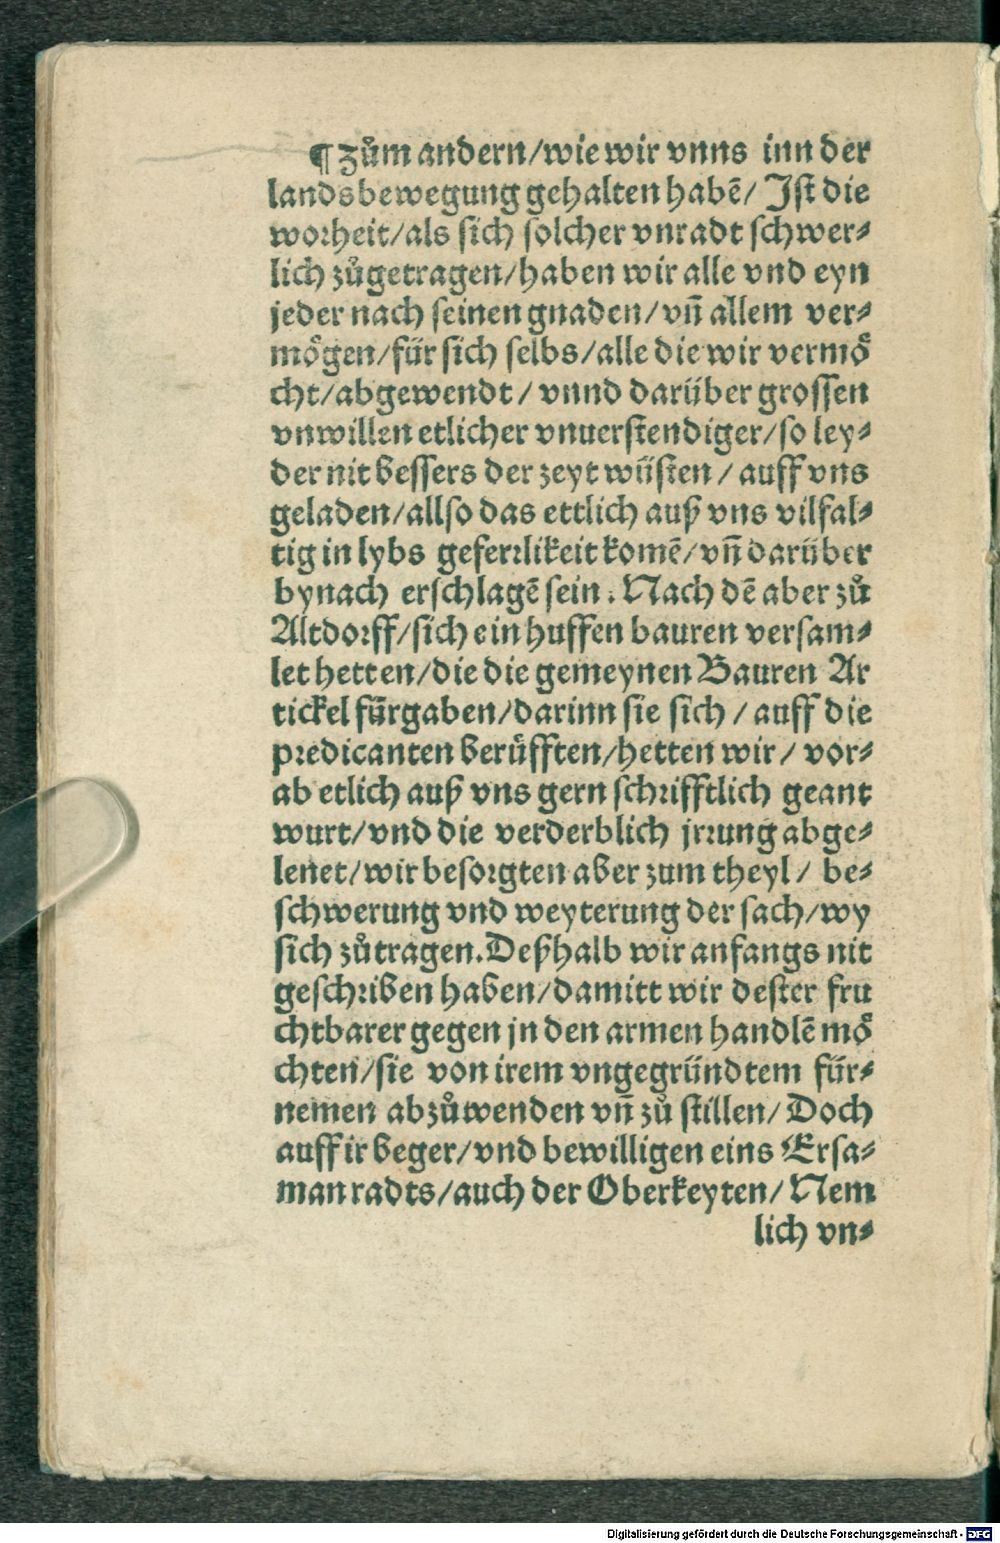 ¶ Zům andern/wie wir vnns inn der
landsbewegung gehalten habē/ Ist die
worheit/als sich solcher vnradt schwer⸗
lich zůgetragen/haben wir alle vnd eyn
jeder nach seinen gnaden/vñ allem ver⸗
mögen/für sich selbs/alle die wir vermö
cht/abgewendt/ vnnd darüber grossen
vnwillen etlicher vnuerstendiger/so ley⸗
der nit bessers der zeyt wüsten/ auff vns
geladen/allso das ettlich auß vns vilfal⸗
tig in lybs geferrlikeit komē/vñ darüber
bynach erschlagē sein. Nach dē aber zů
Altdorff/sich ein huffen bauren versam⸗
let hetten/die die gemeynen Bauren Ar
tickel fürgaben/darinn sie sich/ auff die
predicanten berüfften/hetten wir/ vor⸗
ab etlich auß vns gern schrifftlich geant
wurt/vnd die verderblich jrrung abge⸗
lenet/wir besorgten aber zum theyl/ be⸗
schwerung vnd weyterung der sach/wy
sich zůtragen. Deßhalb wir anfangs nit
geschriben haben/damitt wir dester fru
chtbarer gegen jn den armen handlē mö
chten/sie von irem vngegründtem für⸗
nemen abzůwenden vñ zů stillen/ Doch
auff ir beger/vnd bewilligen eins Ersa⸗
man radts/auch der Oberkeyten/ Nem
lich vn⸗
Digitalisierung gefördert durch die Deutsche Forschungsgemeinschaft - DFG